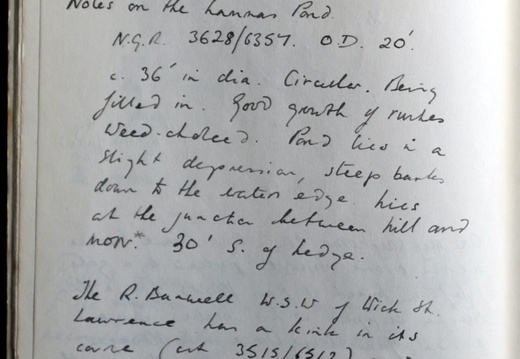 Notes on the Lammas Pond.
N.G.R. 3628/6357. O.D. 20'.
c. 36' in dia. Circular. Being
filled in. Good growth of rushes
weed-choked. Pond lies in a
slight depression, steep banks
down to the waters edge. Lies
at the junction between hill and
moor.* 30' S. of hedge.
The R. Banwell W.S.W of Wick St.
Lawrence has a kink in its
course (at 3515/6512)